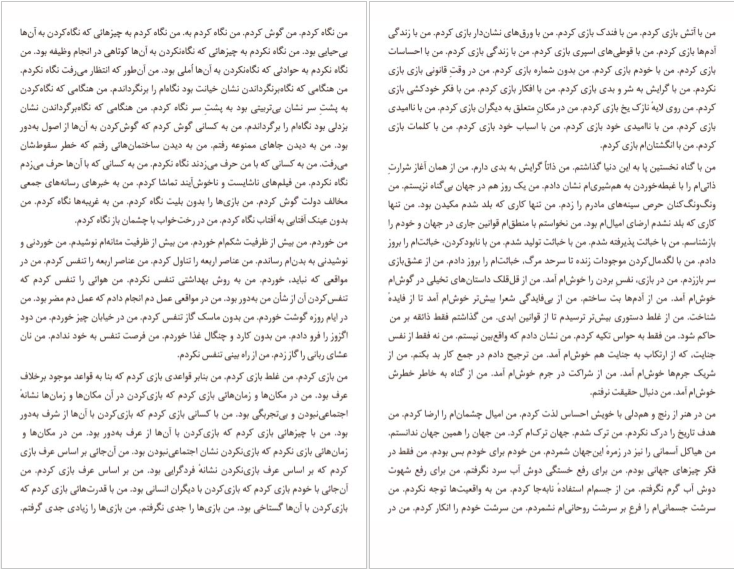 من نگاه کردم. من گوش کردم. من نگاه کردم به. من نگاه کردم به چیزهائی که نگاه‌کردن به آن‌ها
بی‌حیایی بود. من نگاه نکردم به چیزهائی که نگاه‌نکردن به آن‌ها کوتاهی در انجام وظیفه بود. من
نگاه نکردم به حوادثی که نگاه‌نکردن به آن‌ها اُملی بود. من آن‌طور که انتظار می‌رفت نگاه نکردم.
من هنگامی که نگاه‌برنگرداندن نشان خیانت بود نگاه‌ام را برنگرداندم. من هنگامی که نگاه‌کردن
به پشتِ سر نشان بی‌تربیتی بود به پشتِ سر نگاه کردم. من هنگامی که نگاه‌برگرداندن نشان
بزدلی بود نگاه‌ام را برگرداندم. من به کسانی گوش کردم که گوش‌کردن به آن‌ها از اصول به‌دور
بود. من به دیدن جاهای ممنوعه رفتم. من به دیدن ساختمان‌هائی رفتم که خطر سقوط‌شان
می‌رفت. من به کسانی که با من حرف می‌زدند نگاه نکردم. من به کسانی که با آن‌ها حرف می‌زدم
نگاه نکردم. من فیلم‌های ناشایست و ناخوش‌آیند تماشا کردم. من به خبرهای رسانه‌های جمعی
مخالف دولت گوش کردم. من بازی‌ها را بدون بلیت نگاه کردم. من به غریبه‌ها نگاه کردم. من
بدون عینک آفتابی به آفتاب نگاه کردم. من در رخت‌خواب با چشمان باز نگاه کردم.
من خوردم. من بیش از ظرفیت شکم‌ام خوردم. من بیش از ظرفیت مثانه‌ام نوشیدم. من خوردنی و
نوشیدنی به بدن‌ام رساندم. من عناصر اربعه را تناول کردم. من عناصر اربعه را تنفس کردم. من در
مواقعی که نباید، خوردم. من به روش بهداشتی تنفس نکردم. من هوائی را تنفس کردم که
تنفس‌کردن آن از شأن من به‌دور بود. من در مواقعی عمل دم انجام دادم که عمل دم مضر بود. من
در ایام روزه گوشت خوردم. من بدون ماسک گاز تنفس کردم. من در خیابان چیز خوردم. من دود
اگزوز را فرو دادم. من بدون کارد و چنگال غذا خوردم. من فرصت تنفس به خود ندادم. من نان
عشای ربانی را گاز زدم. من از راه بینی تنفس نکردم.
من بازی کردم. من غلط بازی کردم. من بنابر قواعدی بازی کردم که بنا به قواعد موجود برخلاف
عرف بود. من در مکان‌ها و زمان‌هائی بازی کردم که بازی‌کردن در آن مکان‌ها و زمان‌ها نشانهٔ
اجتماعی‌نبودن و بی‌تجربگی بود. من با کسانی بازی کردم که بازی‌کردن با آن‌ها از شرف به‌دور
بود. من با چیزهائی بازی کردم که بازی‌کردن با آن‌ها از عرف به‌دور بود. من در مکان‌ها و
زمان‌هائی بازی نکردم که بازی‌نکردن نشان اجتماعی‌نبودن بود. من آن‌جائی بر اساس عرف بازی
کردم که بر اساس عرف بازی‌نکردن نشانهٔ فردگرایی بود. من بر اساس عرف بازی کردم. من
آن‌جائی با خودم بازی کردم که بازی‌کردن با دیگران انسانی بود. من با قدرت‌هائی بازی کردم که
بازی‌کردن با آن‌ها گستاخی بود. من بازی‌ها را جدی نگرفتم. من بازی‌ها را زیادی جدی گرفتم.
من با آتش بازی کردم. من با فندک بازی کردم. من با ورق‌های نشان‌دار بازی کردم. من با زندگی
آدم‌ها بازی کردم. من با قوطی‌های اسپری بازی کردم. من با زندگی بازی کردم. من با احساسات
بازی کردم. من با خودم بازی کردم. من بدون شماره بازی کردم. من در وقتِ قانونی بازی بازی
نکردم. من با گرایش به شر و بدی بازی کردم. من با افکار بازی کردم. من با فکر خودکشی بازی
کردم. من روی لایهٔ نازک یخ بازی کردم. من در مکانِ متعلق به دیگران بازی کردم. من با ناامیدی
بازی کردم. من با ناامیدی خود بازی کردم. من با اسباب خود بازی کردم. من با کلمات بازی
کردم. من با انگشتان‌ام بازی کردم.
من با گناه نخستین پا به این دنیا گذاشتم. من ذاتاً گرایش به بدی دارم. من از همان آغاز شرارتِ
ذاتی‌ام را با غبطه‌خوردن به هم‌شیری‌ام نشان دادم. من یک روز هم در جهان بی‌گناه نزیستم. من
ونگ‌ونگ‌کنان حرص سینه‌های مادرم را زدم. من تنها کاری که بلد شدم مکیدن بود. من تنها
کاری که بلد نشدم ارضای امیال‌ام بود. من نخواستم با منطق‌ام قوانین جاری در جهان و خودم را
بازشناسم. من با خباثت پذیرفته شدم. من با خباثت تولید شدم. من با نابودکردن، خباثت‌ام را بروز
دادم. من با لگدمال‌کردن موجودات زنده تا سرحد مرگ، خباثت‌ام را بروز دادم. من از عشق‌بازی
سر باززدم. من در بازی، نفس بردن را خوش‌ام آمد. من از قل‌قلک داستان‌های تخیلی در گوش‌ام
خوش‌ام آمد. من از آدم‌ها بت ساختم. من از بی‌فایدگی شعرا بیش‌تر خوش‌ام آمد تا از فایدهٔ
شناخت. من از غلط دستوری بیش‌تر ترسیدم تا از قوانین ابدی. من گذاشتم فقط ذائقه بر من
حاکم شود. من فقط به حواس تکیه کردم. من نشان دادم که واقع‌بین نیستم. من نه فقط از نفس
جنایت، که از ارتکاب به جنایت هم خوش‌ام آمد. من ترجیح دادم در جمع کار بد بکنم. من از
شریک جرم‌ها خوش‌ام آمد. من از شراکت در جرم خوش‌ام آمد. من از گناه به خاطر خطرش
خوش‌ام آمد. من دنبال حقیقت نرفتم.
من در هنر از رنج و هم‌دلی با خویش احساس لذت کردم. من امیال چشمان‌ام را ارضا کردم. من
هدف تاریخ را درک نکردم. من ترک شدم. جهان ترک‌ام کرد. من جهان را همین جهان ندانستم.
من هیاکل آسمانی را نیز در زمرهٔ این‌جهان شمردم. من خودم برای خودم بس بودم. من فقط در
فکر چیزهای جهانی بودم. من برای رفع خستگی دوش آب سرد نگرفتم. من برای رفع شهوت
دوش آب گرم نگرفتم. من از جسم‌ام استفادهٔ نابه‌جا کردم. من به واقعیت‌ها توجه نکردم. من
سرشت جسمانی‌ام را فرعِ بر سرشت روحانی‌ام نشمردم. من سرشت خودم را انکار کردم. من در